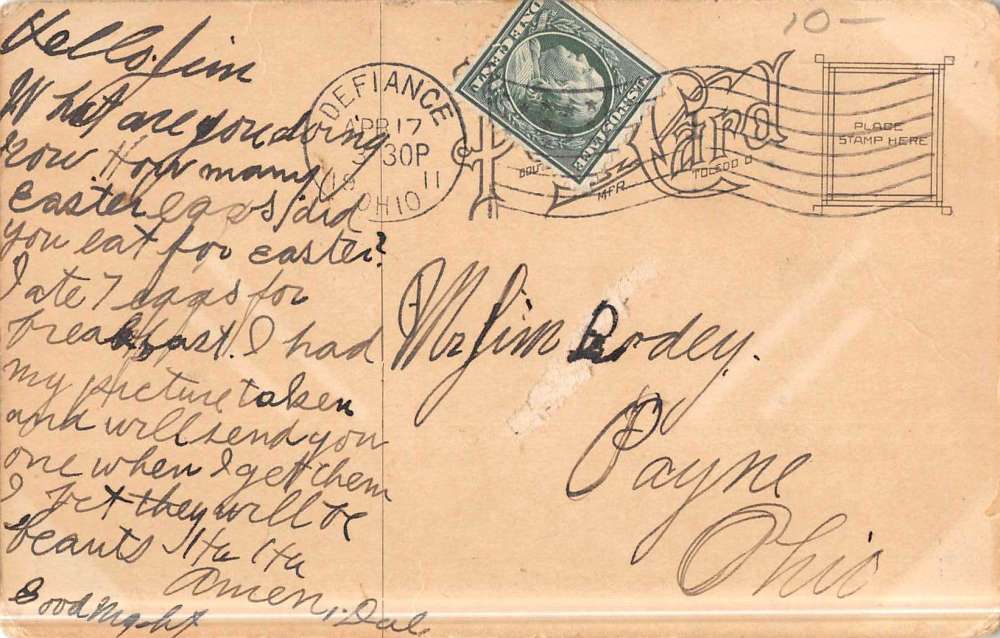 Hello. Jim
What are you doing
now. How many
easter eggs did
you eat for easter?
I ate 7 eggs for
breakfast. I had
my picture taken
and will send you
one when I get them
I bet they will be
beauts Ha Ha
Amen,
Good Night
10-
DEFIANCE
APR 17
3 30P
19 11
OHIO
Card
MFR
TOLEDO O
PLACE
STAMP HERE
Mr Jim
Payne
Ohio